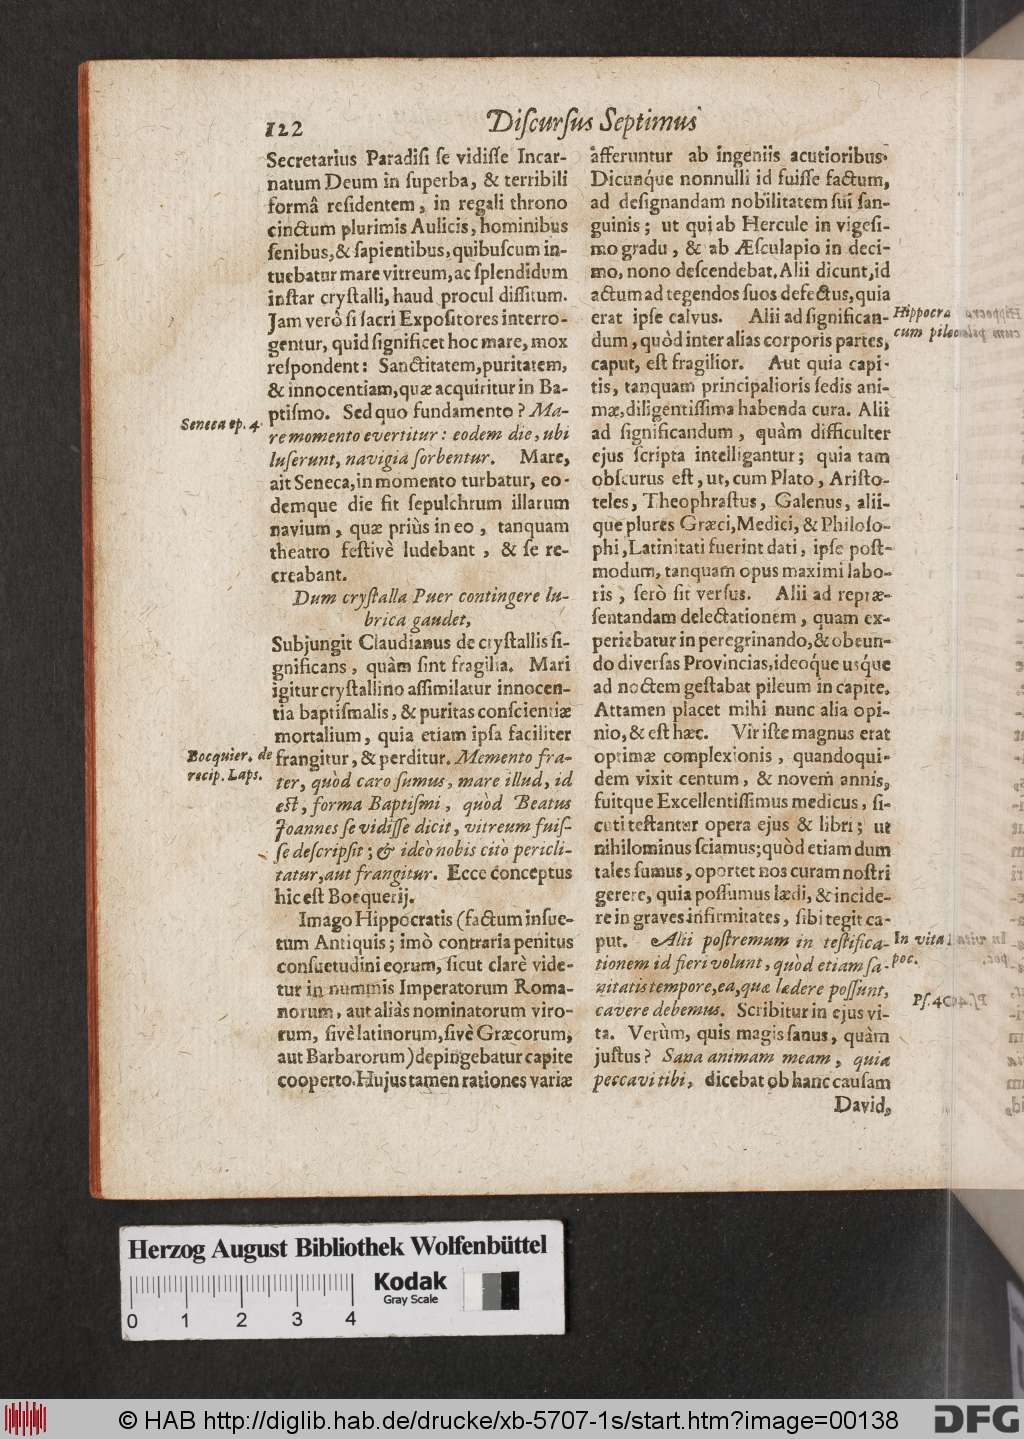 122
Discursus Septimus
Secretarius Paradisi se vidisse Incar-
natum Deum in superba, & terribili
formâ residentem, in regali throno
cinctum plurimis Aulicis, hominibus
senibus, & sapientibus, quibuscum in-
tuebatur mare vitreum, ac splendidum
instar crystalli, haud procul dissitum.
Jam verò si sacri Expositores interro-
gentur, quid significet hoc mare, mox
respondent: Sanctitatem, puritatem,
& innocentiam, quæ acquiritur in Ba-
ptismo. Sed quo fundamento? Ma-
re momento evertitur: eodem die, ubi
luserunt, navigia sorbentur. Mare,
ait Seneca, in momento turbatur, eo-
demque die fit sepulchrum illarum
navium, quæ priùs in eo, tanquam
theatro festivè ludebant, & se re-
creabant.
Dum crystalla Puer contingere lu-
brica gaudet,
Subjungit Claudianus de crystallis si-
gnificans, quàm sint fragilia. Mari
igitur crystallino assimilatur innocen-
tia baptismalis, & puritas conscientiæ
mortalium, quia etiam ipsa faciliter
frangitur, & perditur. Memento fra-
ter, quòd caro sumus, mare illud, id
est, forma Baptismi, quòd Beatus
Joannes se vidisse dicit, vitreum fuis-
se descripsit; & ideò nobis citò pericli-
tatur, aut frangitur. Ecce conceptus
hic est Bocquerij.
Imago Hippocratis (factum insue-
tum Antiquis; imò contraria penitus
consuetudini eorum, sicut clarè vide-
tur in nummis Imperatorum Roma-
norum, aut aliàs nominatorum viro-
rum, sivè latinorum, sivè Græcorum,
aut Barbarorum) depingebatur capite
cooperto. Hujus tamen rationes variæ
Seneca ep. 4.
Bocquier. de
recip. Laps.
afferuntur ab ingeniis acutioribus.
Dicunq́ue nonnulli id fuisse factum,
ad designandam nobilitatem sui san-
guinis; ut qui ab Hercule in vigesi-
mo gradu, & ab Æsculapio in deci-
mo, nono descendebat. Alii dicunt, id
actum ad tegendos suos defectus, quia
erat ipse calvus. Alii ad significan-
dum, quòd inter alias corporis partes,
caput, est fragilior. Aut quia capi-
tis, tanquam principalioris sedis ani-
mæ, diligentissima habenda cura. Alii
ad significandum, quàm difficulter
ejus scripta intelligantur; quia tam
obscurus est, ut, cum Plato, Aristo-
teles, Theophrastus, Galenus, alii-
que plures Græci, Medici, & Philoso-
phi, Latinitati fuerint dati, ipse post-
modum, tanquam opus maximi labo-
ris, serò sit versus. Alii ad repræ-
sentandam delectationem, quam ex-
periebatur in peregrinando, & obeun-
do diversas Provincias, ideoq́ue usq́ue
ad noctem gestabat pileum in capite.
Attamen placet mihi nunc alia opi-
nio, & est hæc. Vir iste magnus erat
optimæ complexionis, quandoqui-
dem vixit centum, & novem annis,
fuitque Excellentissimus medicus, si-
cuti testantur opera ejus & libri; ut
nihilominus sciamus; quòd etiam dum
tales sumus, oportet nos curam nostri
gerere, quia possumus lædi, & incide-
re in graves infirmitates, sibi tegit ca-
put. Alii postremum in testifica-
tionem id fieri volunt, quòd etiam sa-
nitatis tempore, ea, quæ lædere possunt,
cavere debemus. Scribitur in ejus vi-
ta. Verùm, quis magis sanus, quàm
justus? Sana animam meam, quia
peccavi tibi, dicebat ob hanc causam
David,
Hippocra
cum pileo
In vita
poc.
Ps. 40
Herzog August Bibliothek Wolfenbüttel
Kodak
Gray Scale
0 1 2 3 4
© HAB http://diglib.hab.de/drucke/xb-5707-1s/start.htm?image=00138
DFG